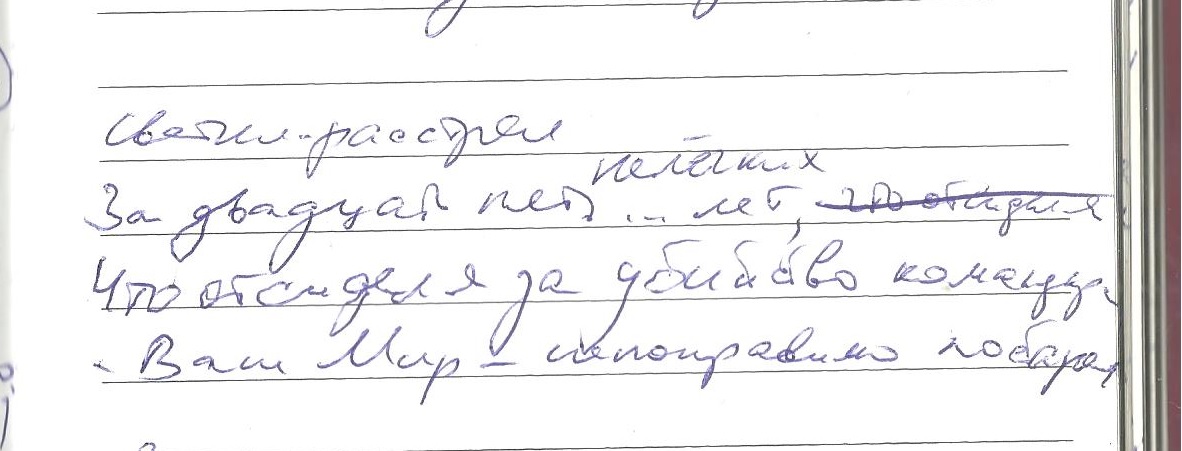 Светил-расстрел
нелёгких
За двадцать пять ... лет, что отсидел я
Что отсидел я за убийство команди
- Ваш Мир – непоправимо